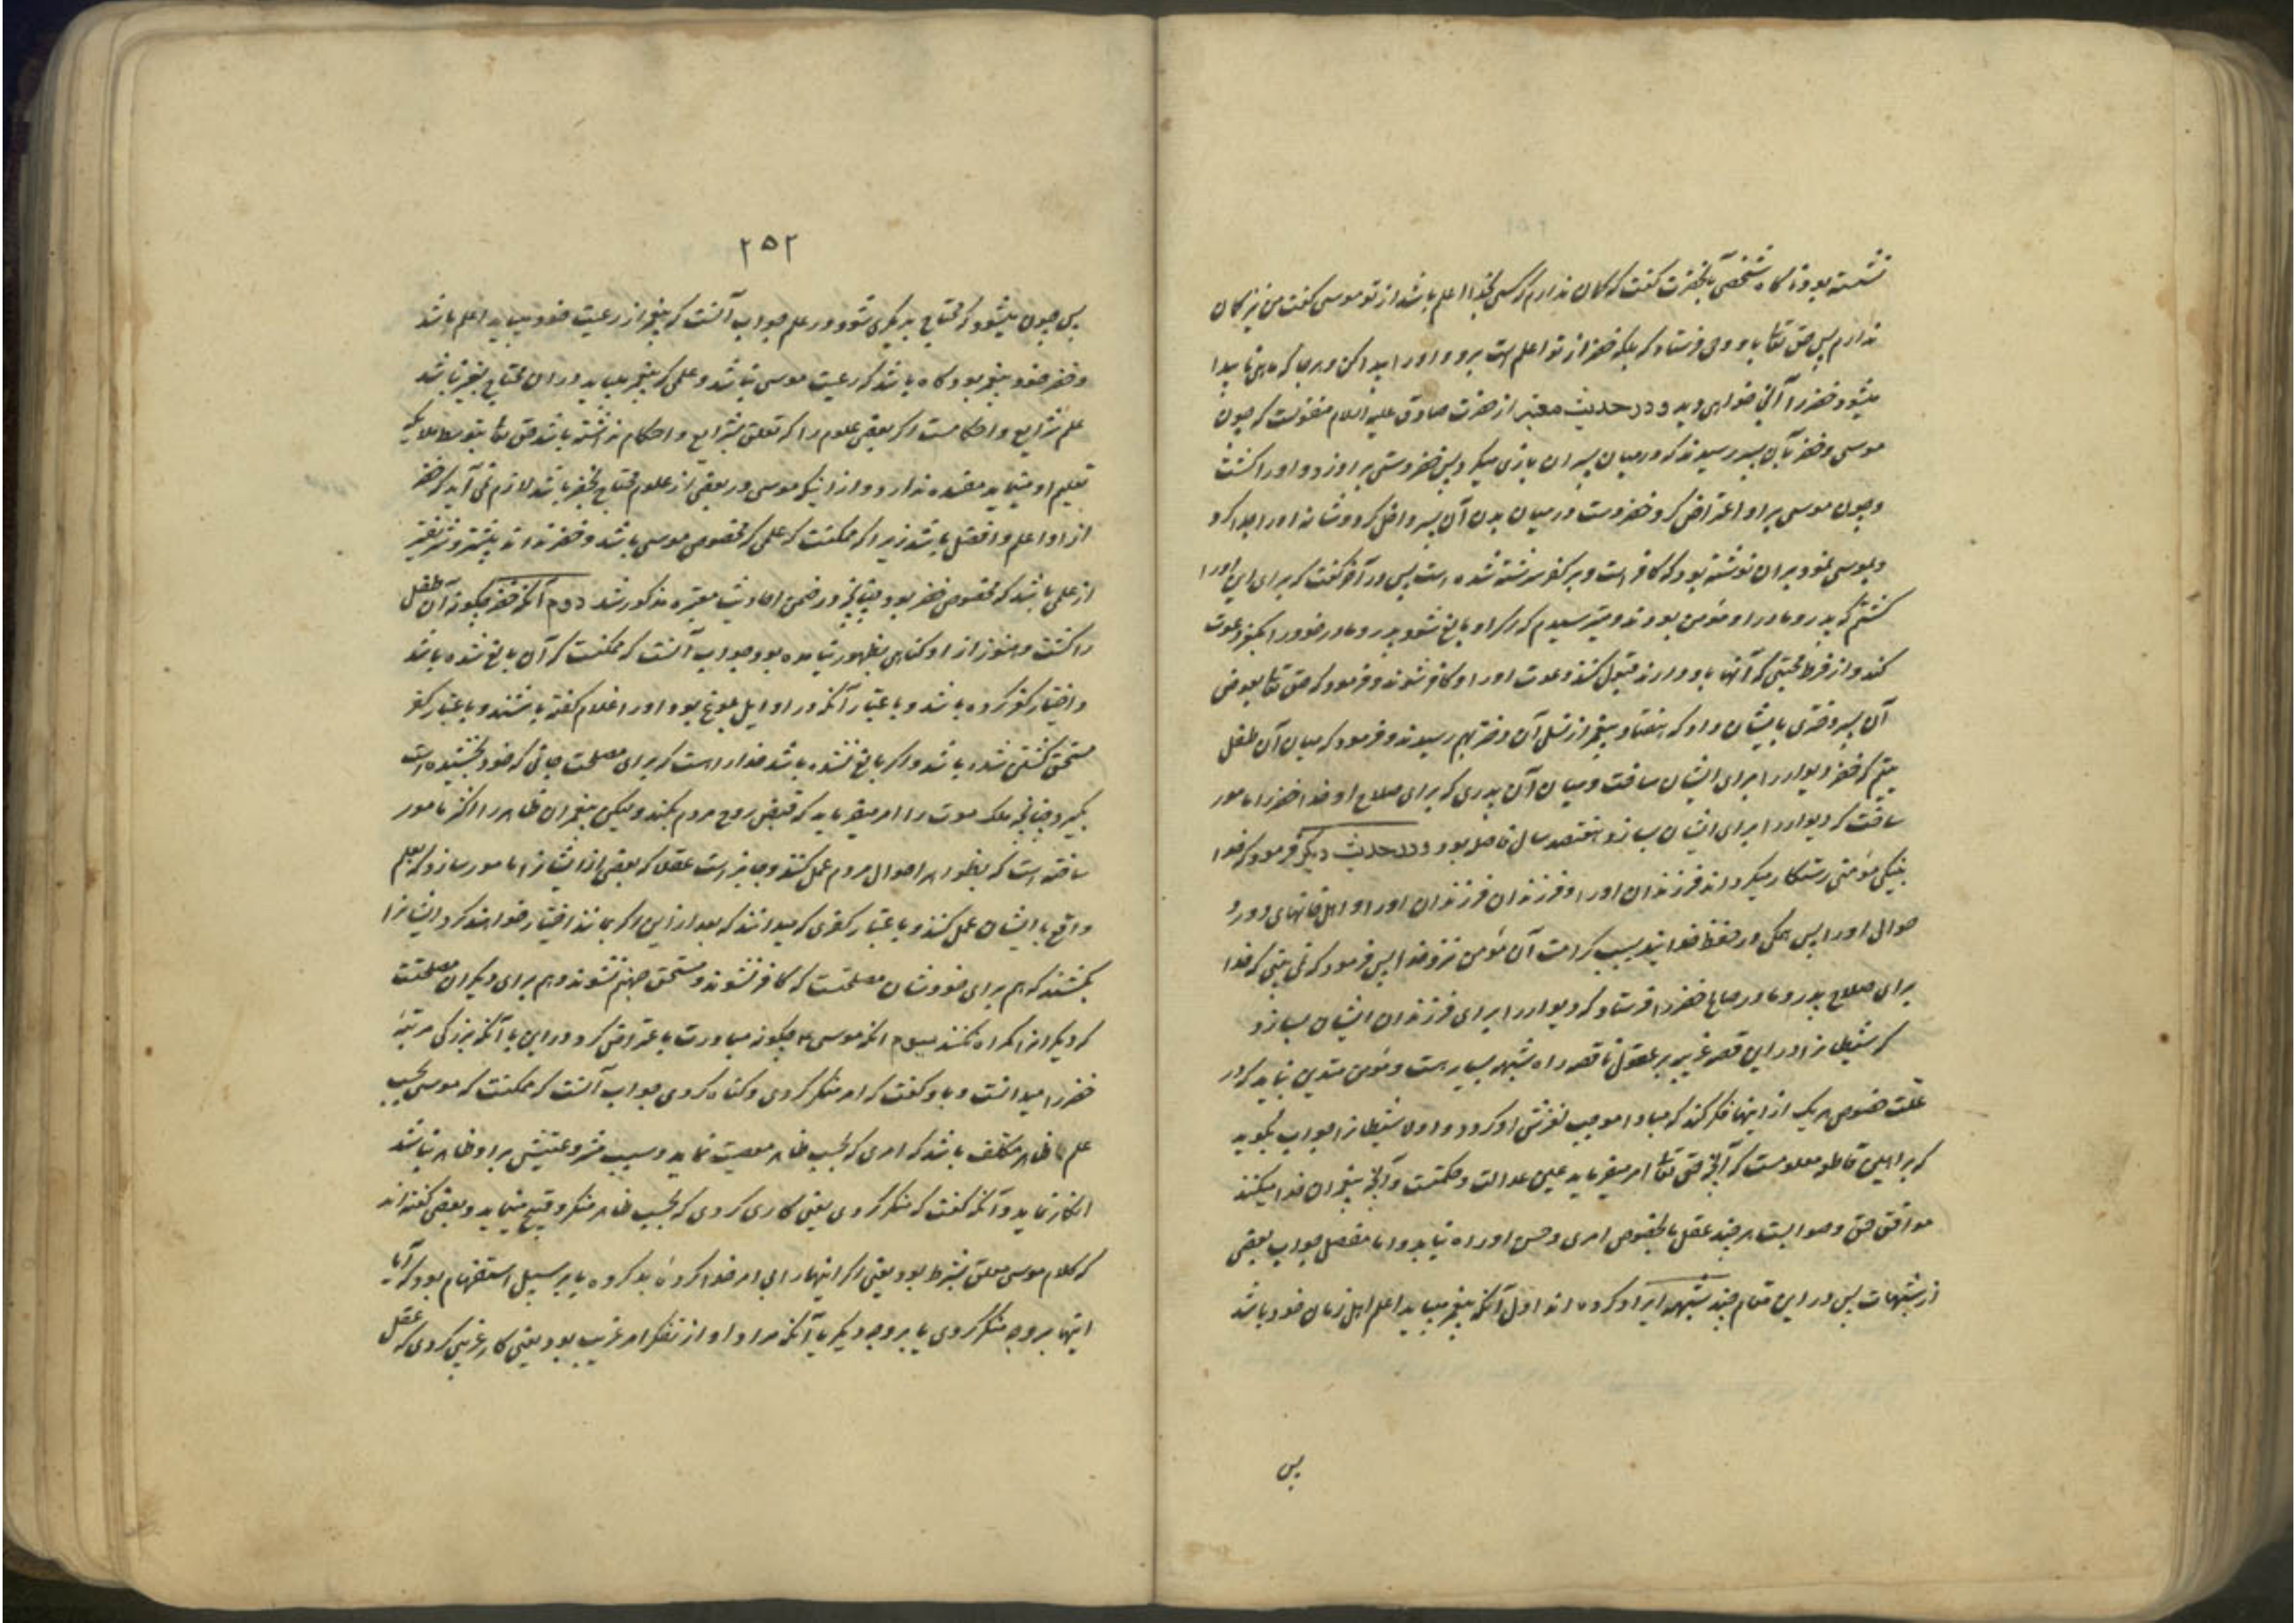 نشسته بود ناگاه شخصی بآنحضرت گفت که گمان ندارم که کسی بخدا اعلم باشد از تو موسی گفت من نیز گمان
ندارم پس حق تعا باو وحی فرستاد که بلکه خضر از تو اعلم است برو و او را پیدا کن و هرجا که ماهی نا پیدا
میشود خضر را آنجا خواهی دید و در حدیث معتبر از حضرت صادق علیه السلام منقولست که چون
موسی و خضر بآن پسر رسیدند که در میان پسران بازی میکرد پس خضر دستی بر او زد و او را کشت
و چون موسی بر او اعتراض کرد خضر دست در میان بدن آن پسر داخل کرد و شانه او را جدا کرد
و بموسی نمود بر آن نوشته بود که کافر است و بر کفر سرشته شده است پس در آخر گفت که برای این او را
کشتم که پدر و مادر او مؤمن بودند و میترسیدم که اگر او بالغ شود پدر و مادر خود را بکفر دعوت
کند و از فرط محبتی که آنها باو دارند قبول کنند دعوت او را و کافر شوند و فرمود که حق تعا بعوض
آن پسر دختری بایشان داد که هفتاد پیغمبر از نسل آن دختر بهم رسیدند و فرمود که میان آن طفل
یتیم که خضر دیوار را برای ایشان ساخت و میان آن پدری که برای صلاح او خدا خضر را مامور
ساخت که دیوار را برای ایشان بسازد هفتصد سال فاصله بود و در حدیث دیگر فرمود که خدا
بنیکی مؤمنی رستگار میگرداند فرزندان او را و فرزندان فرزندان او را و اهل خانهای دور
حوالی او را پس همگی در حفظ خدایند بسبب کرامت آن مؤمن نزد خدا پس فرمود که نمی بینی که خدا
برای صلاح پدر و مادر صالح خضر را فرستاد که دیوار را برای فرزندان ایشان بسازد
که شیطان را در این قصه غریبه بر عقول ناقصه راه شبهه بسیار هست و مؤمن متدین نباید که در
علت خصوص هر یک از اینها فکر کند که مبادا موجب لغزش او گردد و اولا شیطان را جواب بگوید
که براهین قاطعه معلومست که آنچه حق تعا امر میفرماید عین عدالت و حکمتست و آنچه پیغمبران خدا میکنند
موافق حق و صوابست هر چند عقل ما بخصوص امری و حسن او راه نیابد و اما مفصل جواب بعضی
از شبهات پس در این مقام چند شبهه ایراد کرده اند اول آنکه پیغمبر میباید اعلم اهل زمان خود باشد
پس
۲۵۲
پس چون میشود که محتاج بدیگری شود در علم جواب آنست که پیغمبر از رعیت خود میباید اعلم باشد
و خضر خود پیغمبر بود گاه باشد که رعیت موسی نباشد و علمی که پیغمبر میباید در ان محتاج بغیر نباشد
علم شرایع و احکامست اگر بعضی علوم را که تعلق بشرایع و احکام نداشته باشد حق تعا بتوسط ملایکه
تعلیم او مینماید مفسده ندارد و از اینکه موسی در بعضی از علوم محتاج بخضر باشد لازم نمی آید که خضر
از او اعلم و افضل باشد زیرا که ممکنست که علمی که مخصوص موسی باشد و خضر نداند بیشتر و شریفتر
از علمی باشد که مخصوص خضر بود چنانچه در ضمن احادیث معتبره مذکور شد دوم آنکه خضر چگونه آن طفل
را کشت و هنوز از او گناهی بظهور نیامده بود و جواب آنست که ممکنست که آن بالغ شده باشد
و اختیار کفر کرده باشد و باعتبار آنکه در اوایل بلوغ بود او را غلام گفته باشند و باعتبار کفر
مستحق کشتن شده باشد و اگر بالغ نشده باشد خدا را است که برای مصلحت جانی که خود بخشیده است
بگیرد چنانچه ملک موت را امر میفرماید که قبض روح مردم بکند و لیکن پیغمبران ظاهر را اکثر مامور
ساخته است که بظواهر احوال مردم عمل کنند و جایز است عقلا که بعضی از ایشان را مامور سازد که بعلم
واقع با ایشان عمل کنند و باعتبار کفری که میدانند که بعد از این اگر بمانند اختیار خواهند کرد ایشان را
بکشند که هم برای خودشان مصلحتست که کافر نشوند و مستحق جهنم نشوند و هم برای دیگران مصلحتست
که دیگران را گمراه نکنند سیوم انکه موسی ع چگونه مبادرت باعتراض کرد در این با آنکه بزرگی مرتبهٔ
خضر را میدانست و باو گفت که امر منکر کردی و گناه کردی جواب آنست که ممکنست که موسی بحسب
علم ظاهر مکلف باشد که امری که بحسب ظاهر معصیت نماید و سبب مشروعیتش بر او ظاهر نباشد
انکار نماید و آنکه گفت که منکر کردی یعنی کاری کردی که بحسب ظاهر منکر و قبیح مینماید و بعضی گفته اند
که کلام موسی معلق بشرط بود یعنی اگر اینها را بی امر خدا کردهٔ بد کرده یا بر سبیل استفهام بود که آیا
اینها بر وجه منکر کردی یا بر وجه دیگر یا آنکه مراد او از نکر امر غریب بود یعنی کار غریبی کردی که عقل